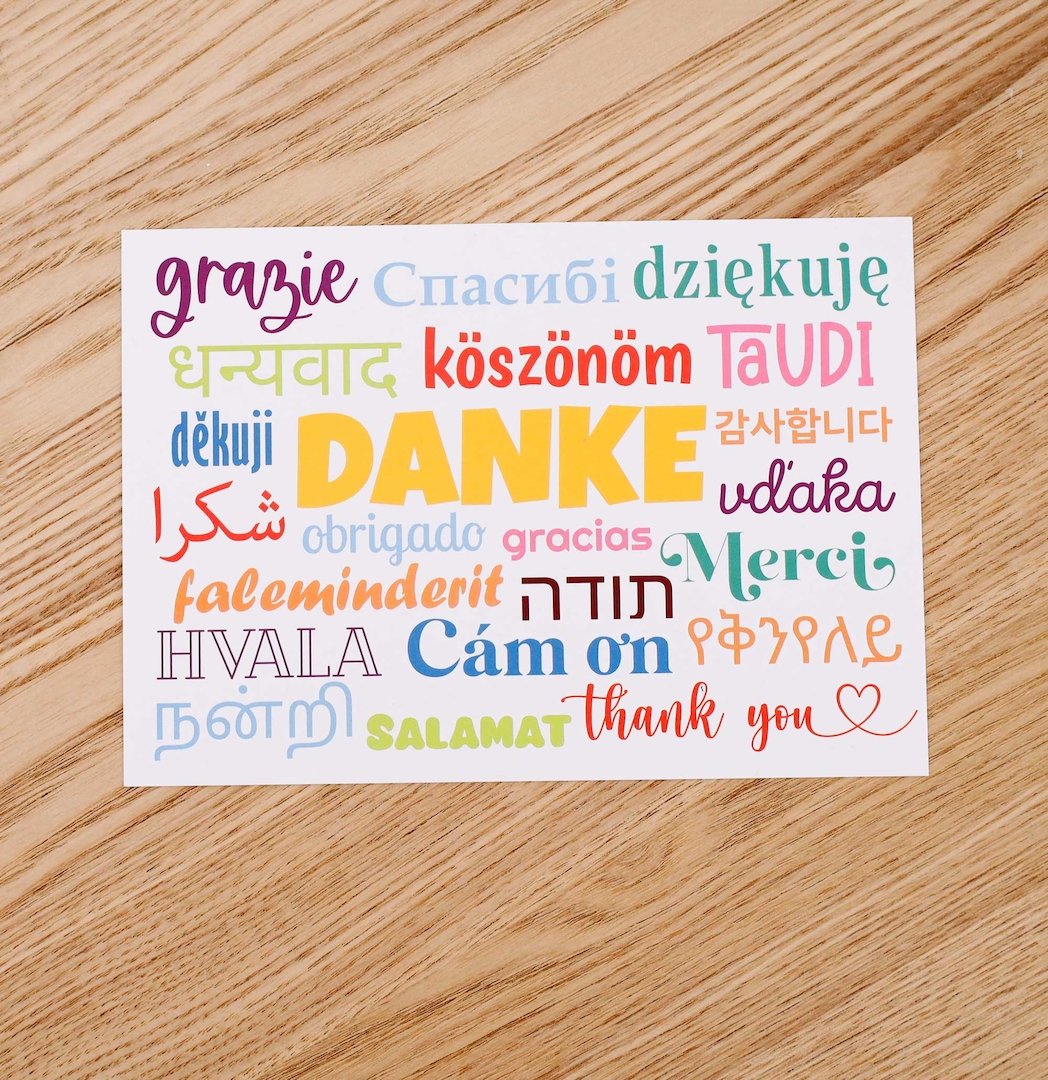 grazie Спасибі dziękuję
धन्यवाद köszönöm TaUDI
děkuji DANKE 감사합니다
شكرا obrigado gracias vďaka
faleminderit תודה Merci
HVALA Cám ơn የቅንየለይ
நன்றி SALAMAT thank you